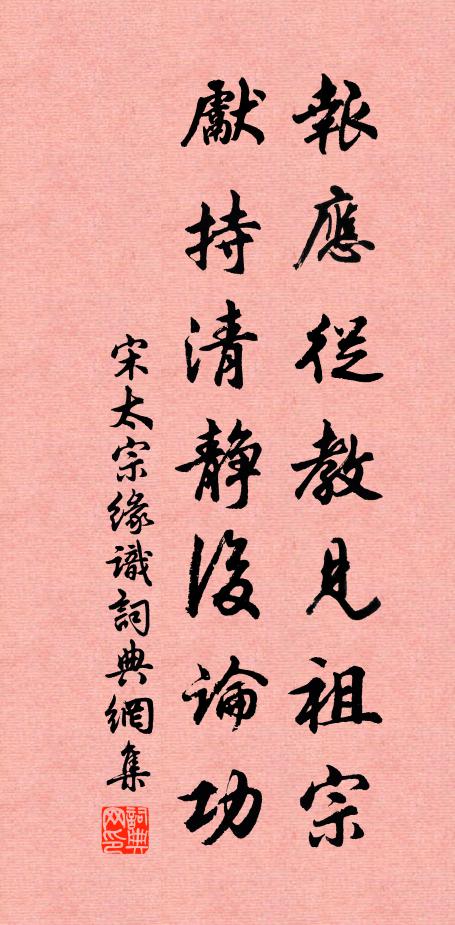 報應從教見祖宗
獻持清靜後論功
宋太宗緣識詞典網集
詞典網印